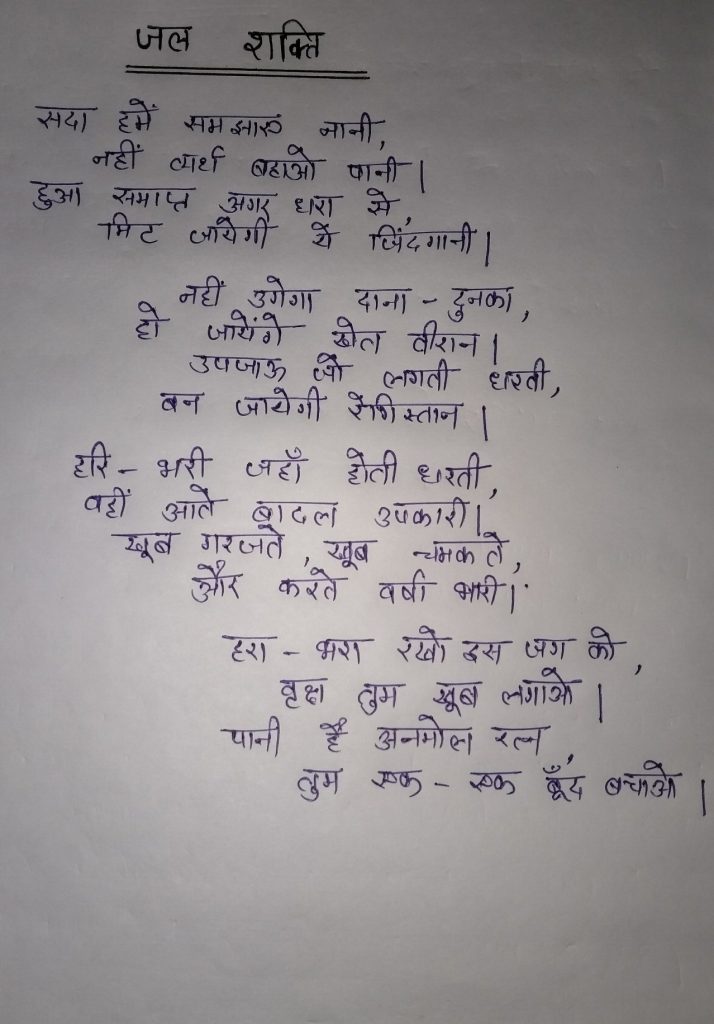 जल शक्ति
सदा हमें समझाए नानी,
नहीं व्यर्थ बहाओ पानी।
हुआ समाप्त अगर धरा से,
मिट जायेगी ये ज़िंदगानी।
नहीं उगेगा दाना - दुनका,
हो जायेंगे खेत वीरान।
उपजाऊ जो लगती धरती,
बन जायेगी रेगिस्तान।
हरि - भरी जहाँ होती धरती,
वहीं आते बादल उपकारी।
खूब गरजते, खूब चमकते,
और करते वर्षा भारी।
हरा - भरा रखो इस जग को,
वृक्ष तुम खूब लगाओ।
पानी है अनमोल रत्न,
तुम एक - एक बूँद बचाओ।